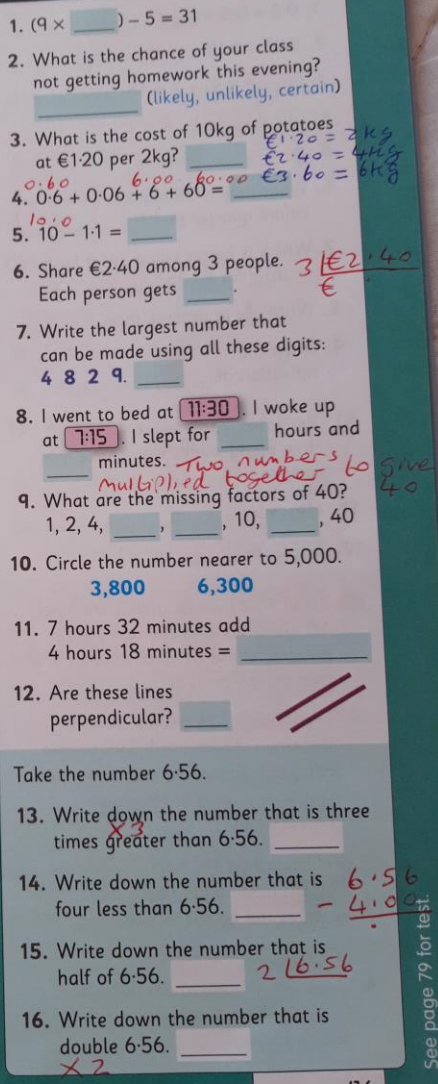 1. (9 × ____) – 5 = 31
2. What is the chance of your class
not getting homework this evening?
____ (likely, unlikely, certain)
3. What is the cost of 10kg of potatoes
€1·20 = 2kg
at €1·20 per 2kg? ____
€2·40 = 4kg
€3·60 = 6kg
0·60 6·00 60·00
4. 0·6 + 0·06 + 6 + 60 = ____
10·0
5. 10 – 1·1 = ____
6. Share €2·40 among 3 people.
3 €2·40
Each person gets ____.
€ ·
7. Write the largest number that
can be made using all these digits:
4 8 2 9. ____
8. I went to bed at 11:30. I woke up
at 7:15. I slept for ____ hours and
____ minutes.
Two numbers to give
multiplied together 40
9. What are the missing factors of 40?
1, 2, 4, ____, ____, 10, ____, 40
10. Circle the number nearer to 5,000.
3,800 6,300
11. 7 hours 32 minutes add
4 hours 18 minutes = ____
12. Are these lines
perpendicular? ____
Take the number 6·56.
13. Write down the number that is three
×3
times greater than 6·56. ____
14. Write down the number that is
6·56
four less than 6·56. ____
– 4·00
·
15. Write down the number that is
half of 6·56. ____
2 6·56
16. Write down the number that is
double 6·56. ____
×2
See page 79 for test.